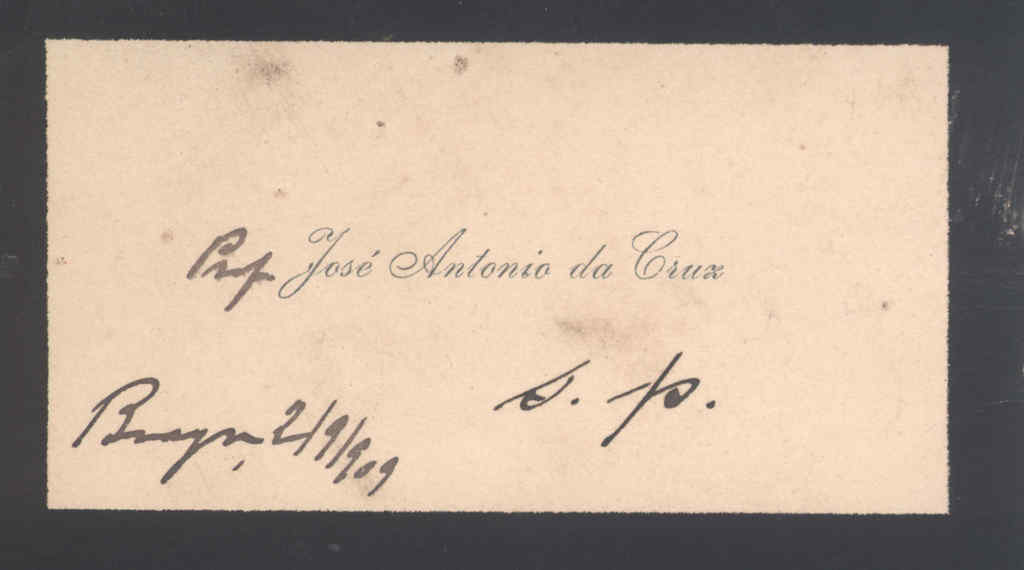 Prof José Antonio da Cruz
s. p.
Braga, 2/9/909